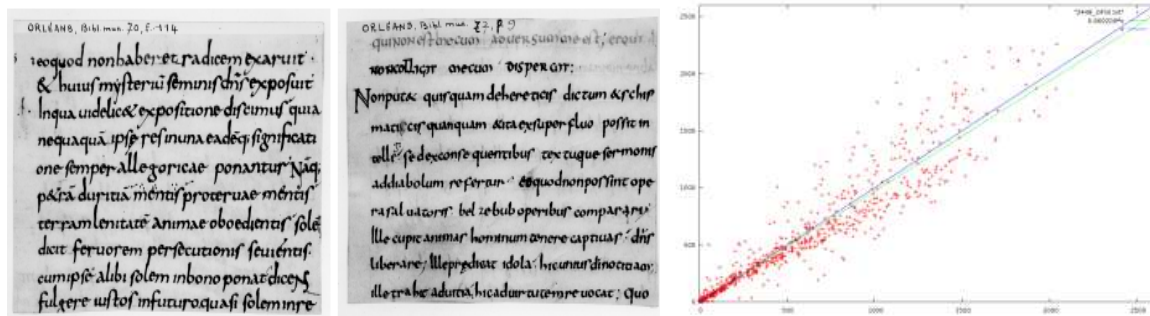 ORLÉANS, Bibl. mun. 70, f. 114
eoquod non haberet radicem exaruit
& huius mysteriũ seminis dñs exposuit
Inqua uidelic& expositione discimus quia
nequaquã ipse res inuna eadẽq; significati
one semper allegoricae ponantur Nãq;
p&rã duritiã mentis proteruae mentis
terram lenitatẽ animae oboedientis solẽ
dicit feruorem persecutionis seuientis
cum ipse alibi solem inbono ponat dicens
fulgere iustos infuturo quasi solem inre
ORLÉANS, Bibl mun. 72, p 9
quinon est mecum aduersum me est; et qui
non colligit mecum dispergit;
Nonputat quisquam dehereticis dictum & schis
maticis quanquam & ita ex superfluo possit in
sed exconsequentibus textuque sermonis
addiabolum refertur eoquod non possint ope
ra saluatoris belzebub operibus comparari
Ille cupit animas hominum tenere captiuas dñs
liberare; Ille predicat idola; hic unius di
ille trahit aduitia, hic aduirtutem reuocat; quo
2500
2000
1500
1000
500
0
0 500 1000 1500 2000 2500